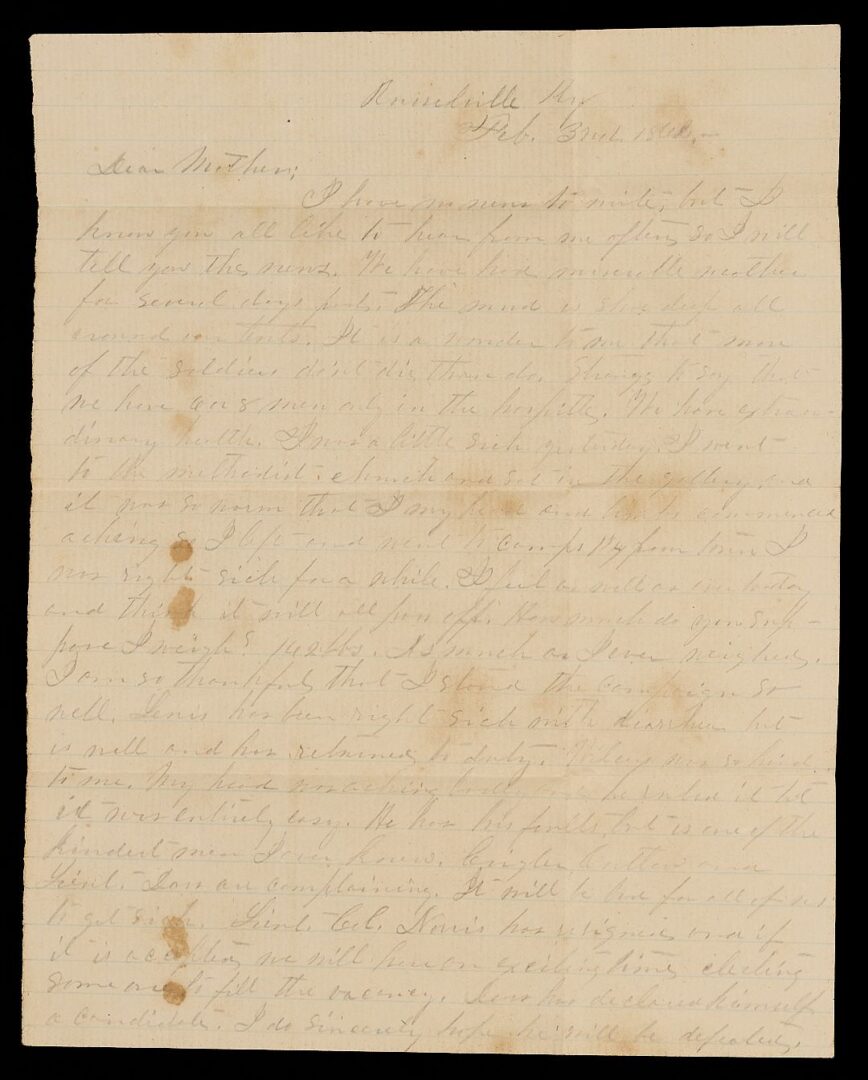 Russelville Ky
Feb. 3rd 1862.
Dear Mother;
I have no news to write, but I
know you all like to hear from me often, so I will
tell you the news. We have had miserable weather
for several days past. The mud is shoe deep all
around our tents. It is a wonder to me that more
of the soldiers don't die than do. Strange to say that
we have 6 or 8 men only in the hospittle. We have extraor-
dinary health. I was a little sick yesterday. I went
to the methodist church and sat in the gallery and
it was so warm that I my head and commenced
aching so I left and went to camp from town I
was right sick for a while. I feel as well as ever today
and think it will all pass off. How much do you sup-
pose I weigh? 142 lbs. As much as I ever weighed.
I am so thankful that I stand the campaign so
well. Lewis has been right sick with diarrhea but
is well and has returned to duty. was so kind
to me. My head was aching badly and he rubed it till
it was entirely easy. He has his faults but is one of the
kindest men I ever knew. and
Lieut. are complaining. It will be bad for all of us
to get sick. Lieut. Col. Norris has resigned and if
it is accepted we will have an exciting time electing
some one to fill the vacancy. has declared himself
a candidate. I do sincerely hope he will be defeated.